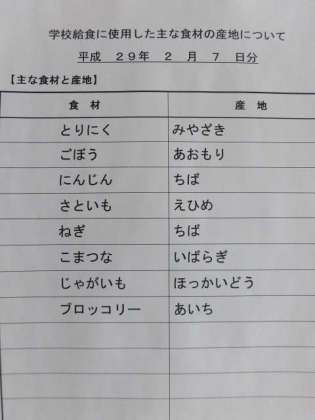 学校給食に使用した主な食材の産地について
平成 29年 2 月 7 日分
【主な食材と産地】
食 材 産 地
とりにく みやざき
ごぼう あおもり
にんじん ちば
さといも えひめ
ねぎ ちば
こまつな いばらぎ
じゃがいも ほっかいどう
ブロッコリー あいち